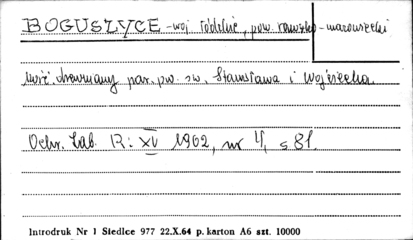 BOGUSZYCE - woj. łódzkie, pow. rawsko-mazowiecki
kość. drewniany par. pw. św. Stanisława i Wojciecha
Ochr. Zab. R: XV 1962, nr 4, s 81.
Introdruk Nr 1 Siedlce 977 22.X.64 p. karton A6 szt. 10000